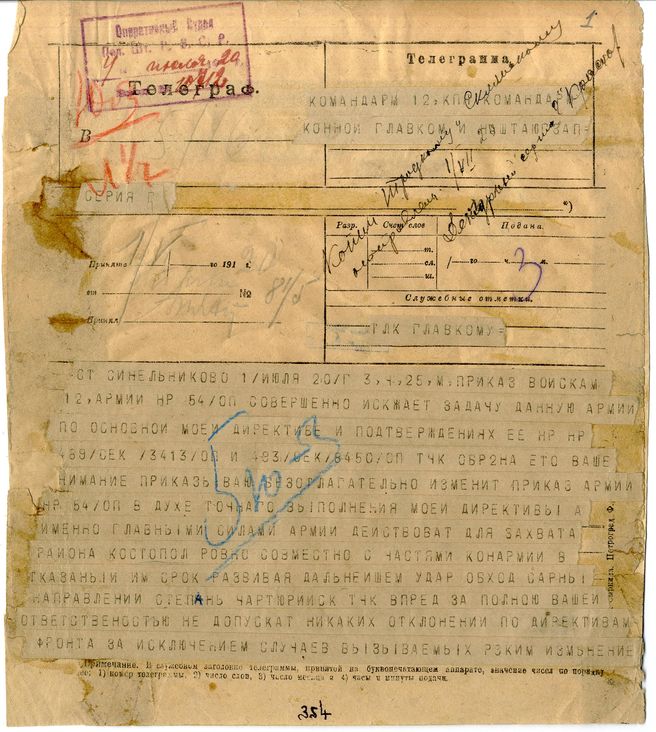 1
Оперативный
Пол. Шт. Р. В. С. Р.
4 июля 20
Телеграф.
Телеграмма
В
КОМАНДАРМ 12, КПЯ КОМАНДА
КОННОЙ ГЛАВКОМ И НШТАЮЗАП=
СЕРИЯ Г
Копии Троцкому Склянскому
1/VII
серия
Разр. Счет слов Подана.
т. /—го ч. м.
сл.
ш.
3
Принята —го 191 г.
от № 815
Принял
Служебные отметки.
ГЛК ГЛАВКОМУ=
СТ СИНЕЛЬНИКОВО 1/ИЮЛЯ 20/Г 3,Ч,25,М,ПРИКАЗ ВОИСКАМ
12,АРМИИ НР 54/ОП СОВЕРШЕННО ИСКЖАЕТ ЗАДАЧУ ДАННУЮ АРМИИ
ПО ОСНОВНОЙ МОЕЙ ДИРЕКТИВЕ И ПОДТВЕРЖДЕНИЯХ ЕЕ НР НР
489/СЕК /3413/ОП И 493/СЕК/8450/ОП ТЧК ОБР2НА ЕТО ВАШЕ
НИМАНИЕ ПРИКАЗЫВАЮ БЕЗОТЛАГАТЕЛЬНО ИЗМЕНИТ ПРИКАЗ АРМИИ
НР 54/ОП В ДУХЕ ТОЧНАГО ВЫПОЛНЕНИЯ МОЕЙ ДИРЕКТИВЫ А
ИМЕННО ГЛАВНЫМИ СИЛАМИ АРМИИ ДЕЙСТВОВАТ ДЛЯ ЗАХВАТА
РАЙОНА КОСТОПОЛ РОВНО СОВМЕСТНО С ЧАСТЯМИ КОНАРМИИ В
КАЗАНЫЙ ИМ СРОК РАЗВИВАЯ ДАЛЬНЕИШЕМ УДАР ОБХОД САРНЫ
НАПРАВЛЕНИИ СТЕПАНЬ ЧАРТЮРИИСК ТЧК ВПРЕД ЗА ПОЛНОЮ ВАШЕЙ
ОТВЕТСТВЕНОСТЬЮ НЕ ДОПУСКАТ НИКАКИХ ОТКЛОНЕНИИ ПО ДИРЕКТИВАМ
ФРОНТА ЗА ИСКЛЮЧЕНИЕМ СЛУЧАЕВ ВЫЗЫВАЕМЫХ РЗКИМ ИЗМЕНЕНИЕ
Петроград Ф.
Примечание. В служебном заголовке телеграммы, принятой на буквопечатающем аппарате, значение чисел по порядку
1) номер телеграммы, 2) число слов, 3) число месяца и 4) часы и минуты подачи.
354